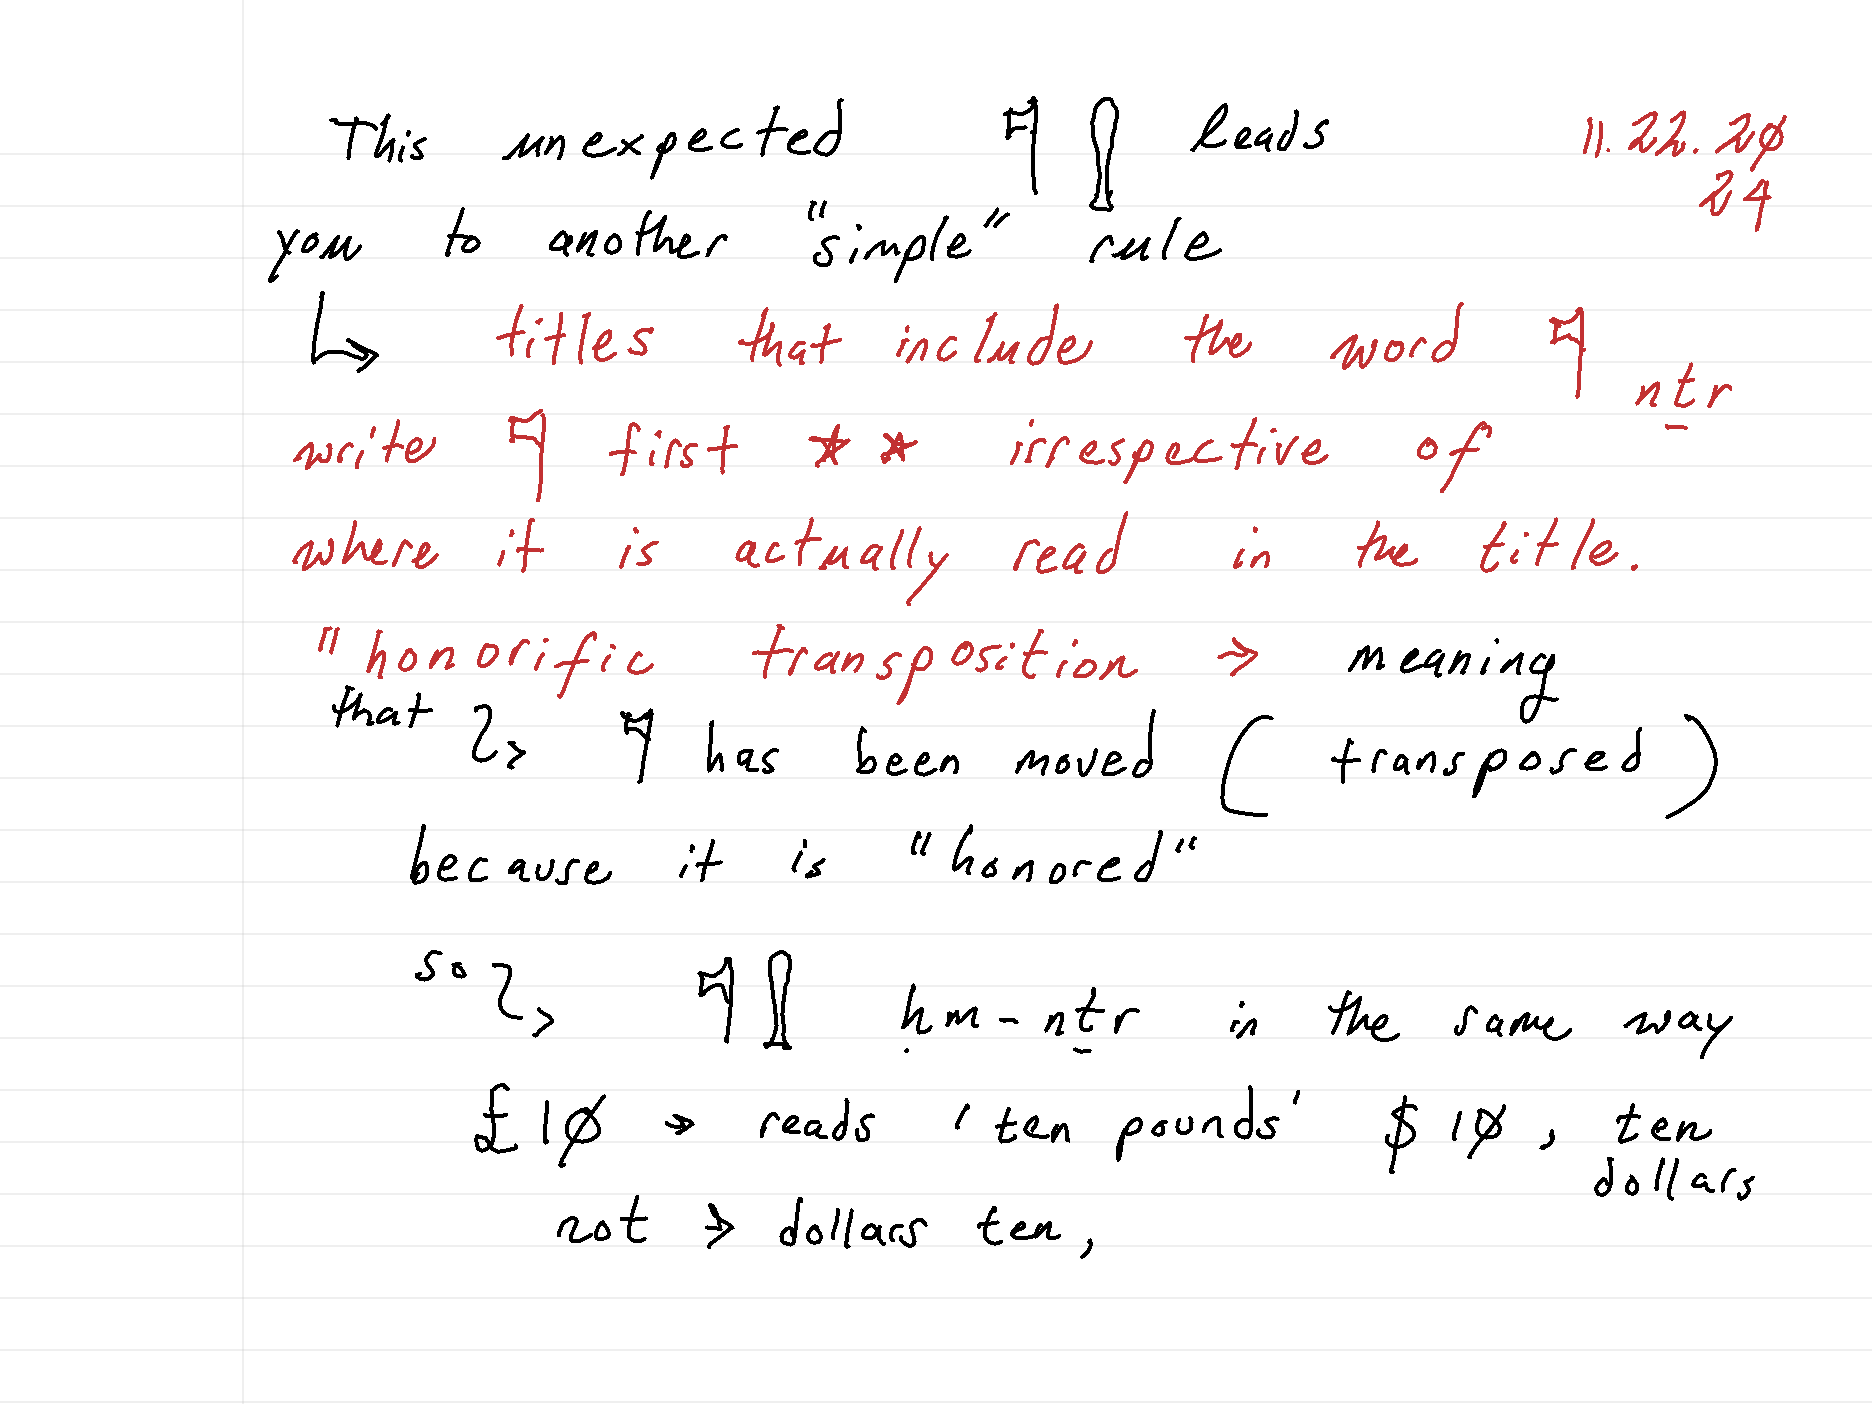 This unexpected 𓊹 𓍛 leads
11.22.20
24
you to another "simple" rule
↳ titles that include the word 𓊹 nṯr
write 𓊹 first ** irrespective of
where it is actually read in the title.
"honorific transposition → meaning
that 𓊹 has been moved (transposed)
because it is "honored"
so 𓊹𓍛 ḥm-nṯr in the same way
£10 → reads 'ten pounds' $10, ten
dollars
not → dollars ten,